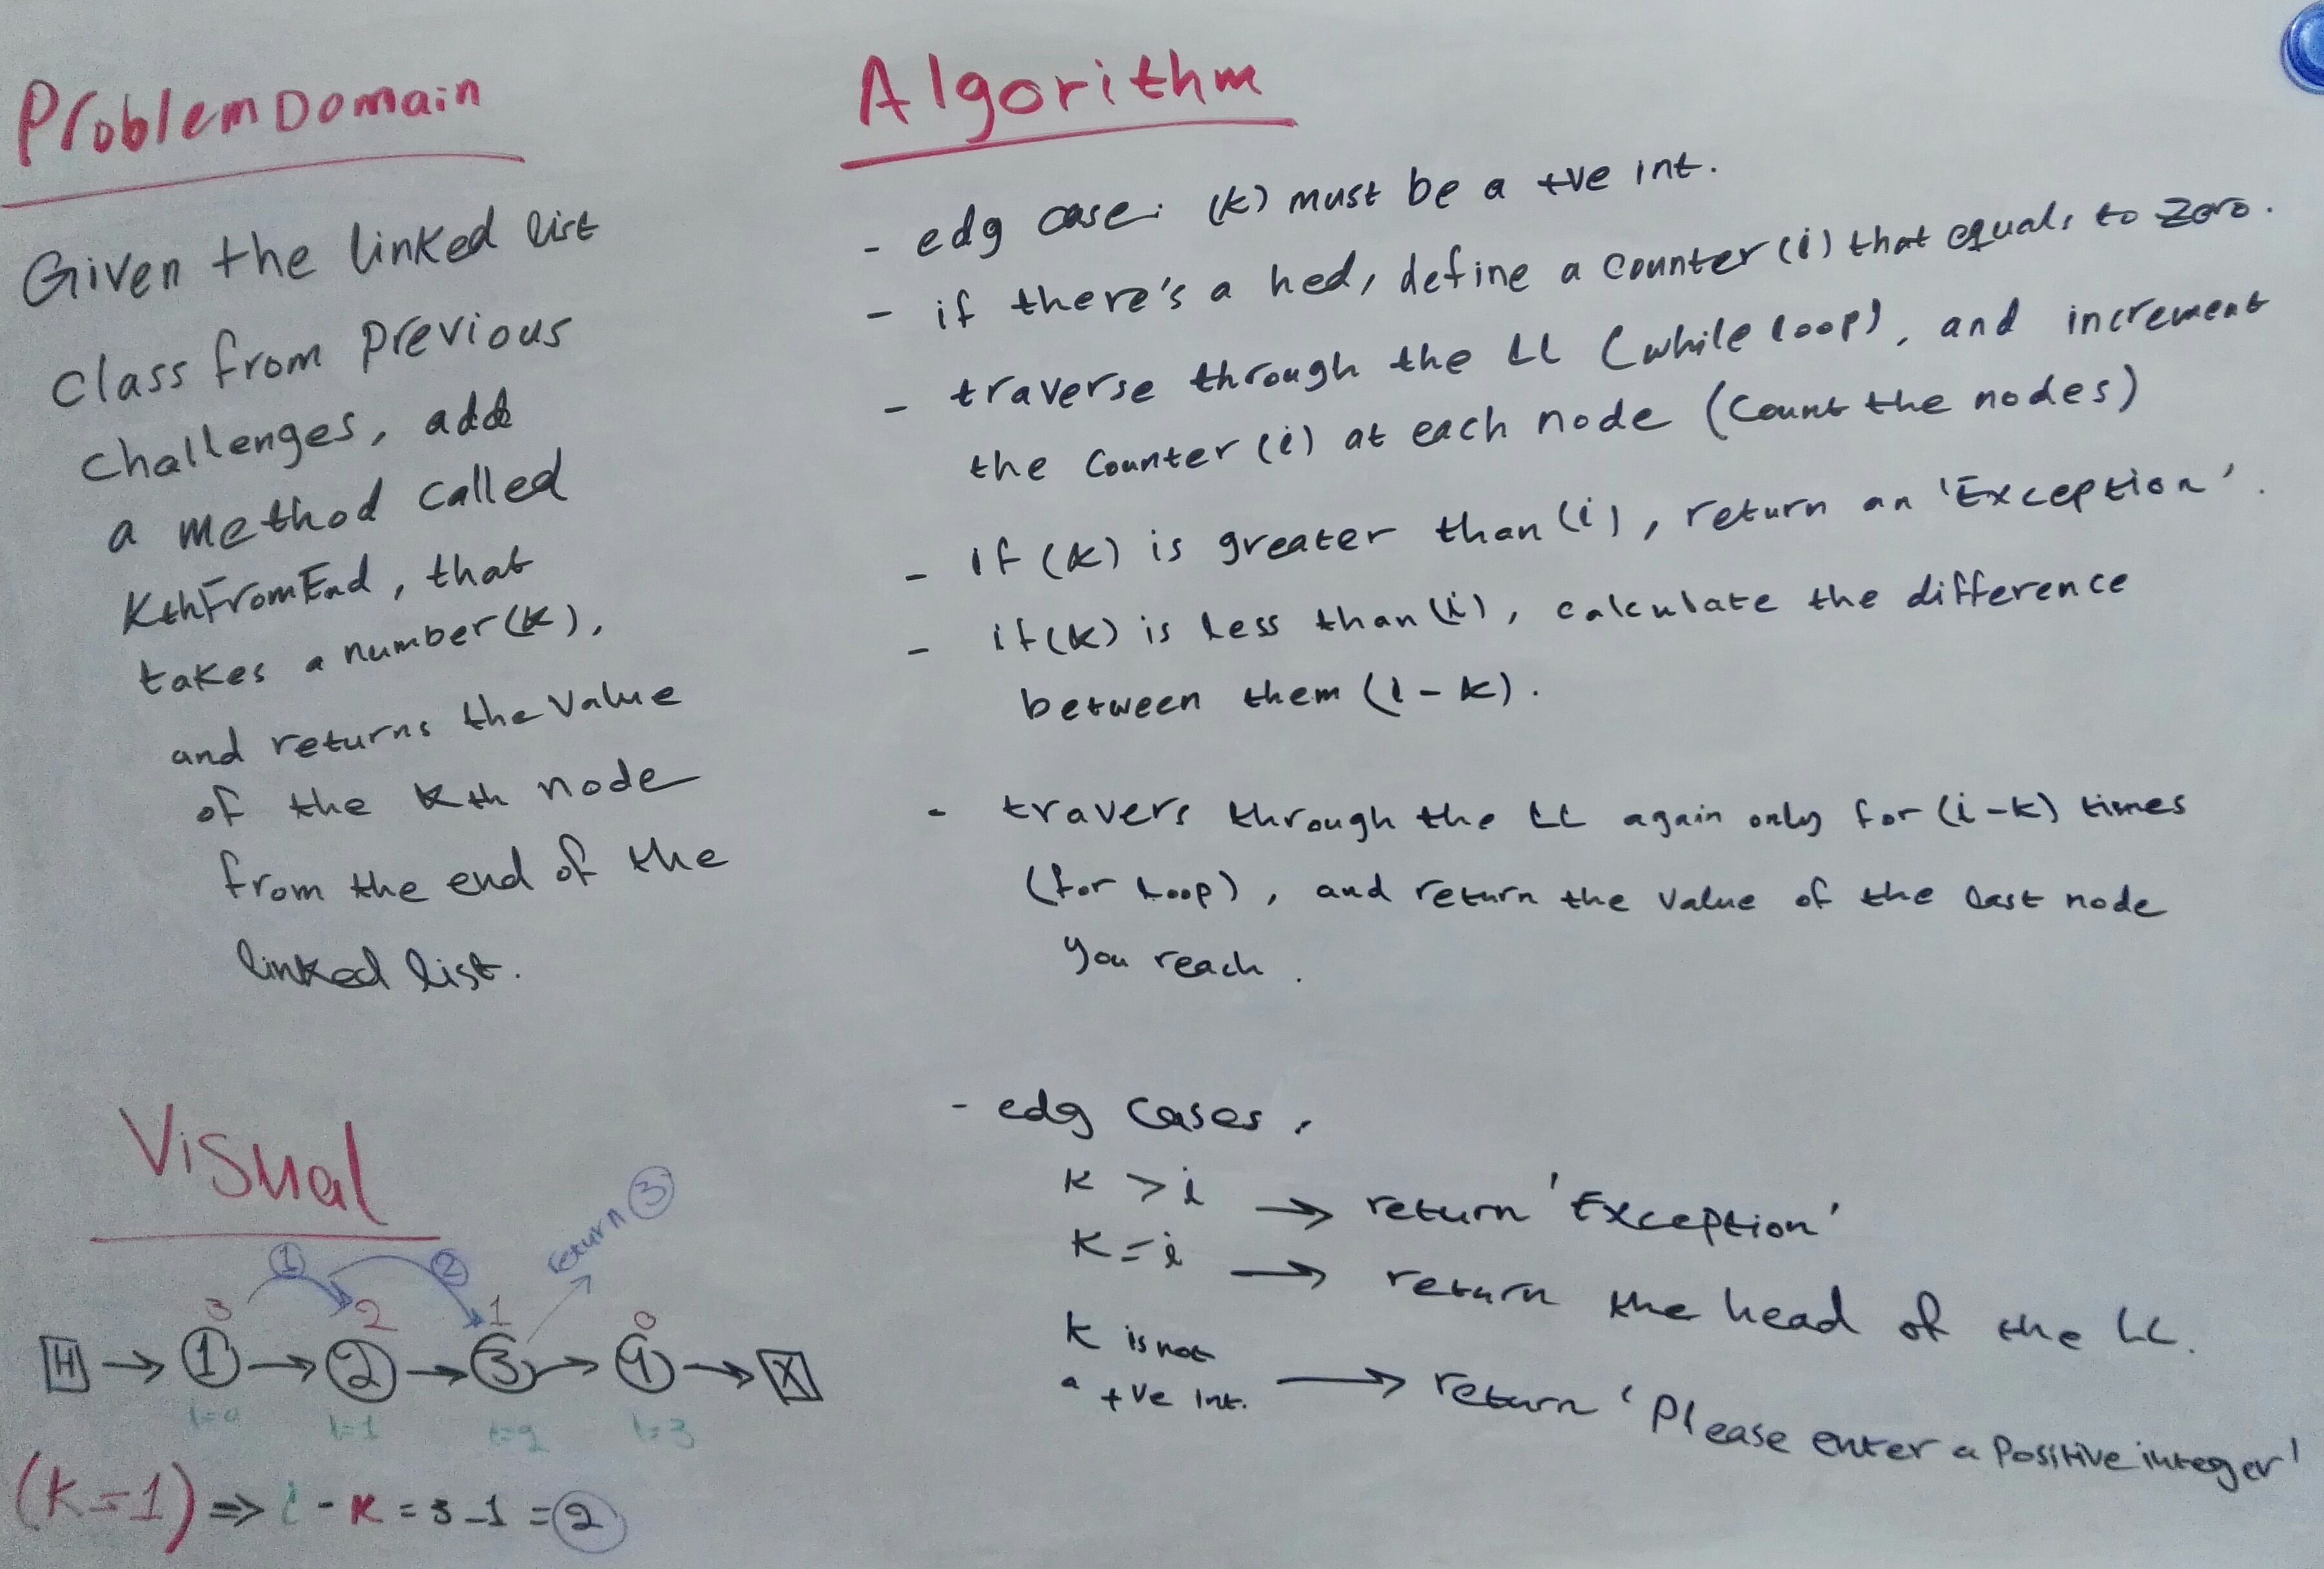 Problem Domain
Given the linked list
class from previous
challenges, add
a method called
KthFromEnd, that
takes a number (k),
and returns the value
of the kth node
from the end of the
linked list.
Algorithm
- edg case: (k) must be a +ve int.
- if there's a hed, define a counter (i) that equals to zero.
- traverse through the LL (while loop), and increment
the counter (i) at each node (count the nodes)
- if (k) is greater than (i), return an 'Exception'.
- if (k) is less than (i), calculate the difference
between them (i - k).
- travers through the LL again only for (i-k) times
(for loop), and return the value of the last node
you reach.
- edg cases,
k > i → return 'Exception'
k = i → return the head of the LL.
k is not
a +ve int. → return 'Please enter a positive integer'
Visual
1 2 return 3
3 2 1 0
H → 1 → 2 → 3 → 4 → X
i=0 i=1 i=2 i=3
(k=1) => i - k = 3 - 1 = 2